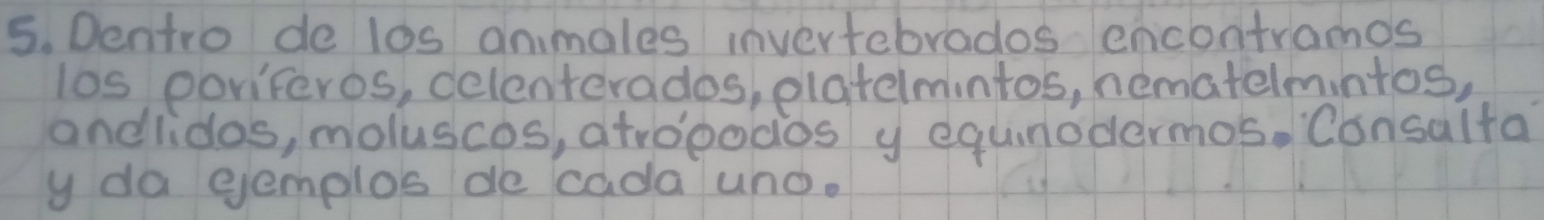 5. Dentro de los animales invertebrados encontramos
los poríferos, celenterados, platelmintos, nematelmintos,
anélidos, moluscos, atrópodos y equinodermos. Consulta
y da ejemplos de cada uno.